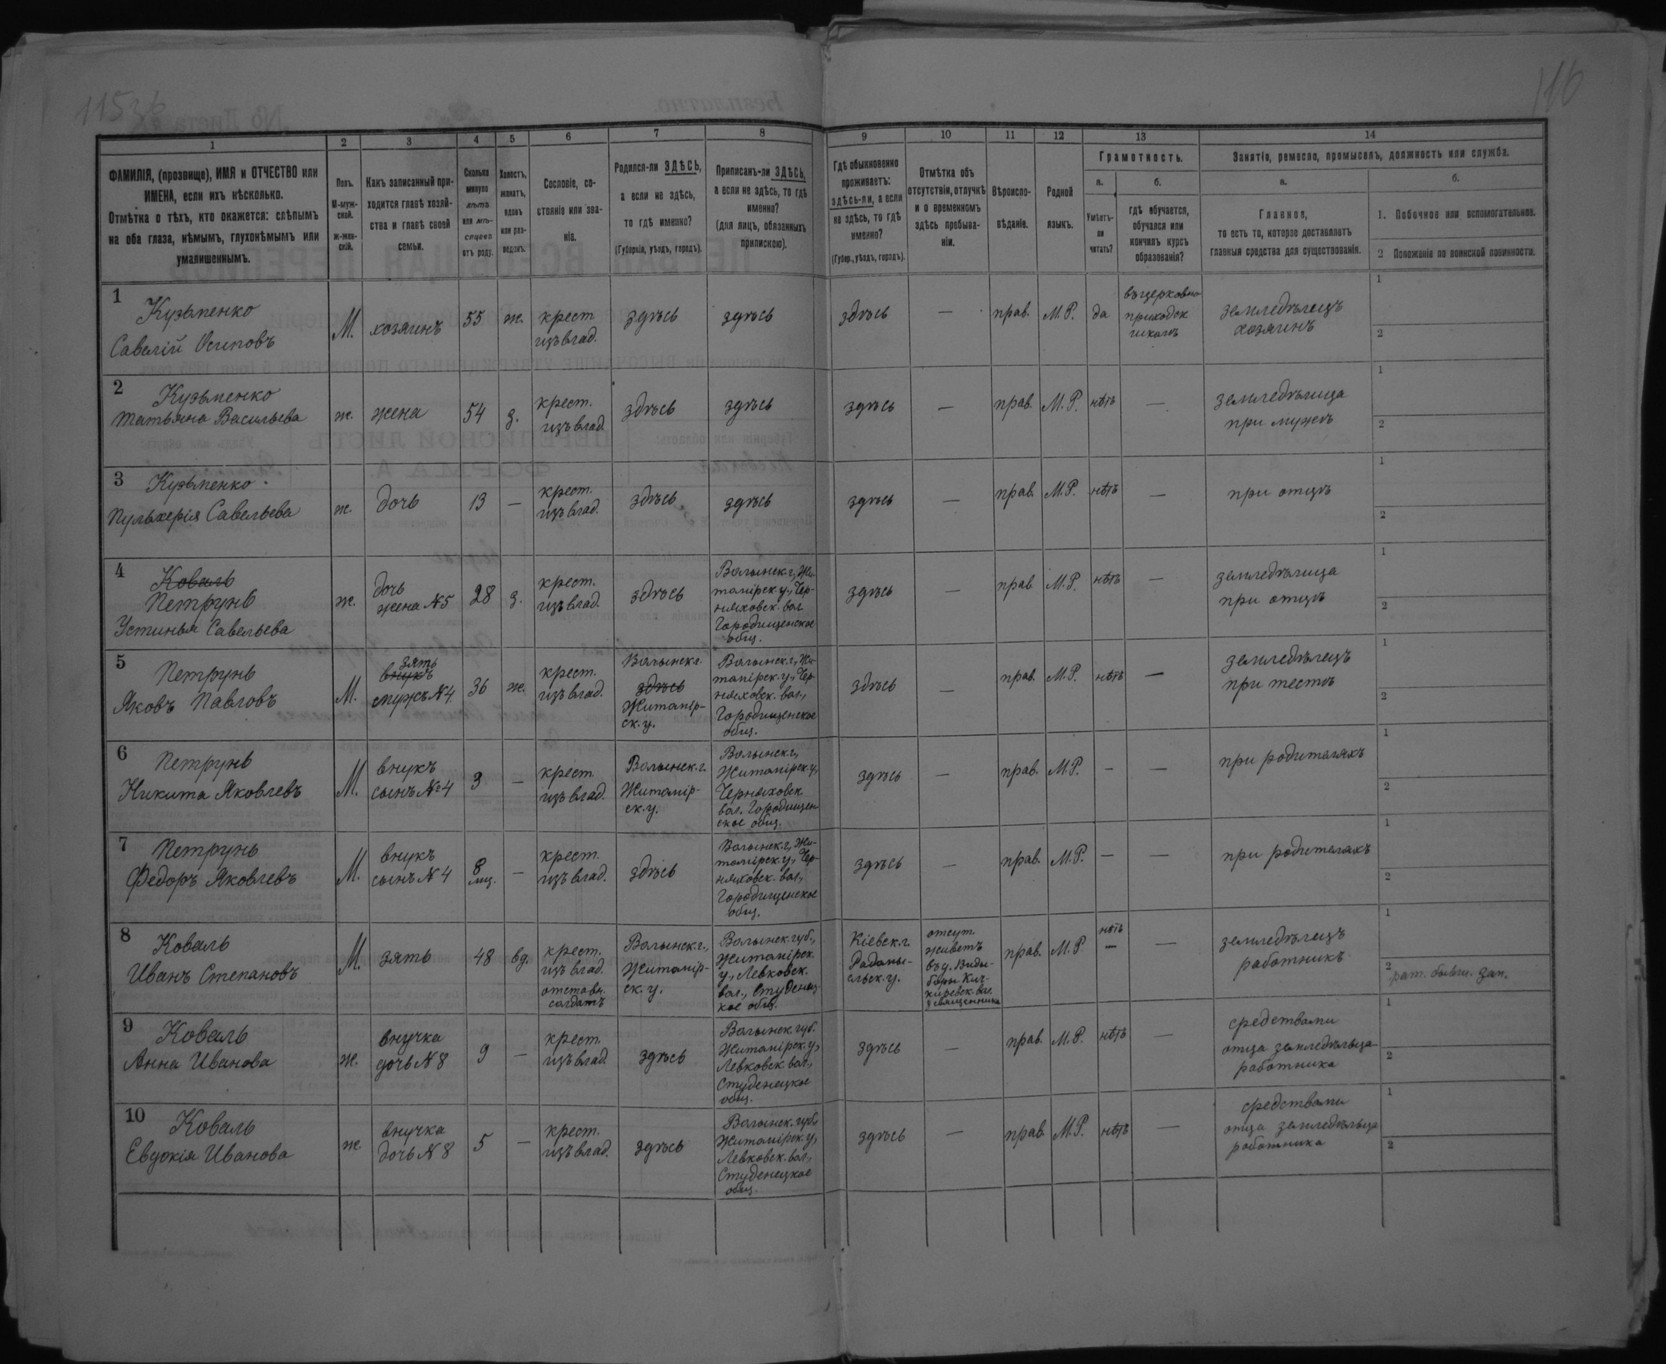 116
1 2 3 4 5 6 7 8 9 10 11 12 13 14
ФАМИЛІЯ, (прозвище), ИМЯ и ОТЧЕСТВО или
ИМЕНА, если ихъ нѣсколько.
Отмѣтка о тѣхъ, кто окажется: слѣпымъ
на оба глаза, нѣмымъ, глухонѣмымъ или
умалишеннымъ.
Полъ.
М-муж-
ской.
ж-жен-
скій.
Какъ записанный при-
ходится главѣ хозяй-
ства и главѣ своей
семьи.
Сколько
минуло
лѣтъ
или мѣ-
сяцевъ
отъ роду.
Холостъ,
женатъ,
вдовъ
или раз-
веденъ.
Сословіе, со-
стояніе или зва-
ніе.
Родился-ли ЗДѢСЬ,
а если не здѣсь,
то гдѣ именно?
(Губернія, уѣздъ, городъ).
Приписанъ-ли ЗДѢСЬ,
а если не здѣсь, то гдѣ
именно?
(для лицъ, обязанныхъ
припискою).
Гдѣ обыкновенно
проживаетъ:
здѣсь-ли, а если
не здѣсь, то гдѣ
именно?
(Губер., уѣздъ, городъ).
Отмѣтка объ
отсутствіи, отлучкѣ
и о временномъ
здѣсь пребыва-
ніи.
Вѣроиспо-
вѣданіе.
Родной
языкъ.
Грамотность.
а.
Умѣетъ-
ли
читать?
б.
гдѣ обучается,
обучался или
кончилъ курсъ
образованія?
Занятіе, ремесло, промыселъ, должность или служба.
а.
Главное,
то есть то, которое доставляетъ
главныя средства для существованія.
б.
1. Побочное или вспомогательное.
2 Положеніе по воинской повинности.
1 Кузьменко
Савелій Осиповъ
М. хозяинъ 55 ж. крест.
изъ влад.
здѣсь здѣсь здѣсь — прав. М.Р. да
въ церковно
приходск
школѣ
земледѣлецъ
хозяинъ
1
2
2 Кузьменко
Татьяна Васильева
ж. жена 54 з. крест.
изъ влад.
здѣсь здѣсь здѣсь — прав. М.Р. нѣтъ —
земледѣлица
при мужѣ
1
2
3 Кузьменко
Пульхерія Савельева
ж. дочь 13 — крест.
изъ влад.
здѣсь здѣсь здѣсь — прав. М.Р. нѣтъ —
при отцѣ
1
2
4 Коваль
Петрунь
Устинья Савельева
ж. дочь
жена №5
28 з. крест.
изъ влад.
здѣсь
Волынск.г., Жи-
томірск.у., Чер-
няховск. вол.
Городищенское
общ.
здѣсь — прав. М.Р. нѣтъ —
земледѣлица
при отцѣ
1
2
5 Петрунь
Яковъ Павловъ
М. зять
внукъ
мужъ №4
36 ж. крест.
изъ влад.
Волынск.г.
здѣсь
Житомір-
ск.у.
Волынск.г., Жи-
томірск.у., Чер-
няховск. вол.,
Городищенское
общ.
здѣсь — прав. М.Р. нѣтъ —
земледѣлецъ
при тестѣ
1
2
6 Петрунь
Никита Яковлевъ
М. внукъ
сынъ №4
3 — крест.
изъ влад.
Волынск.г.
Житомір-
ск.у.
Волынск.г.,
Житомірск.у.,
Черняховск.
вол. Городищен-
ское общ.
здѣсь — прав. М.Р. — —
при родителяхъ
1
2
7 Петрунь
Федоръ Яковлевъ
М. внукъ
сынъ №4
8
мц.
— крест.
изъ влад.
здѣсь
Волынск.г., Жи-
томірск.у., Чер-
няховск. вол.,
Городищенское
общ.
здѣсь — прав. М.Р. — —
при родителяхъ
1
2
8 Коваль
Иванъ Степановъ
М. зять 48 вд. крест.
изъ влад.
отставн.
солдатъ
Волынск.г.,
Житомір-
ск.у.
Волынск.губ.,
Житомірск.
у., Левковск.
вол., Студенец-
кое общ.
Кіевск.г.
Радомы-
сльск.у.
отсут.
живетъ
въ д. Виды-
боръ
священника
прав. М.Р. нѣтъ
— —
земледѣлецъ
работникъ
1
2
9 Коваль
Анна Иванова
ж. внучка
дочь №8
9 — крест.
изъ влад.
здѣсь
Волынск.губ.
Житомірск.у.,
Левковск. вол.,
Студенецкое
общ.
здѣсь — прав. М.Р. нѣтъ —
средствами
отца земледѣльца
работника
1
2
10 Коваль
Евдокія Иванова
ж. внучка
дочь №8
5 — крест.
изъ влад.
здѣсь
Волынск.губ.
Житомірск.у.,
Левковск. вол.,
Студенецкое
общ.
здѣсь — прав. М.Р. нѣтъ —
средствами
отца земледѣльца
работника
1
2